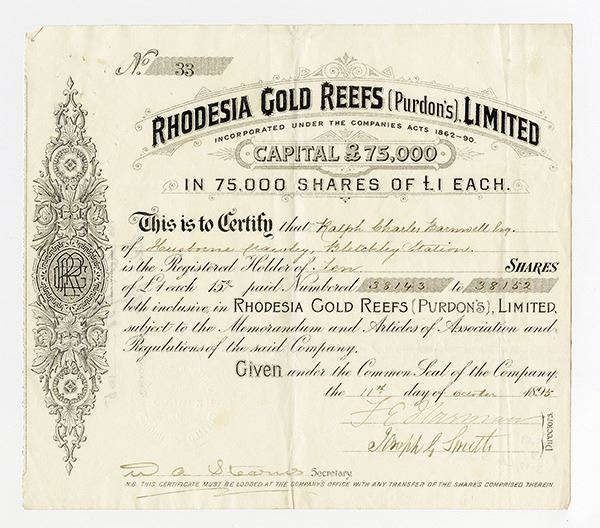 No. 33
RHODESIA GOLD REEFS (Purdon's), LIMITED
INCORPORATED UNDER THE COMPANIES ACTS 1862-90.
CAPITAL £75,000
IN 75,000 SHARES OF £1 EACH.
This is to Certify that Ralph Charles Farmwell Esq.
of Crawley, Bletchley Station
is the Registered Holder of Ten SHARES
of £1 each 15/- paid Numbered 38143 to 38152
both inclusive, in RHODESIA GOLD REEFS (PURDON'S), LIMITED,
subject to the Memorandum and Articles of Association and
Regulations of the said Company.
Given under the Common Seal of the Company,
the 11th day of October 1895
Joseph G Smith
Directors.
W A Stearns Secretary.
N.B. THIS CERTIFICATE MUST BE LODGED AT THE COMPANY'S OFFICE WITH ANY TRANSFER OF THE SHARES COMPRISED THEREIN.